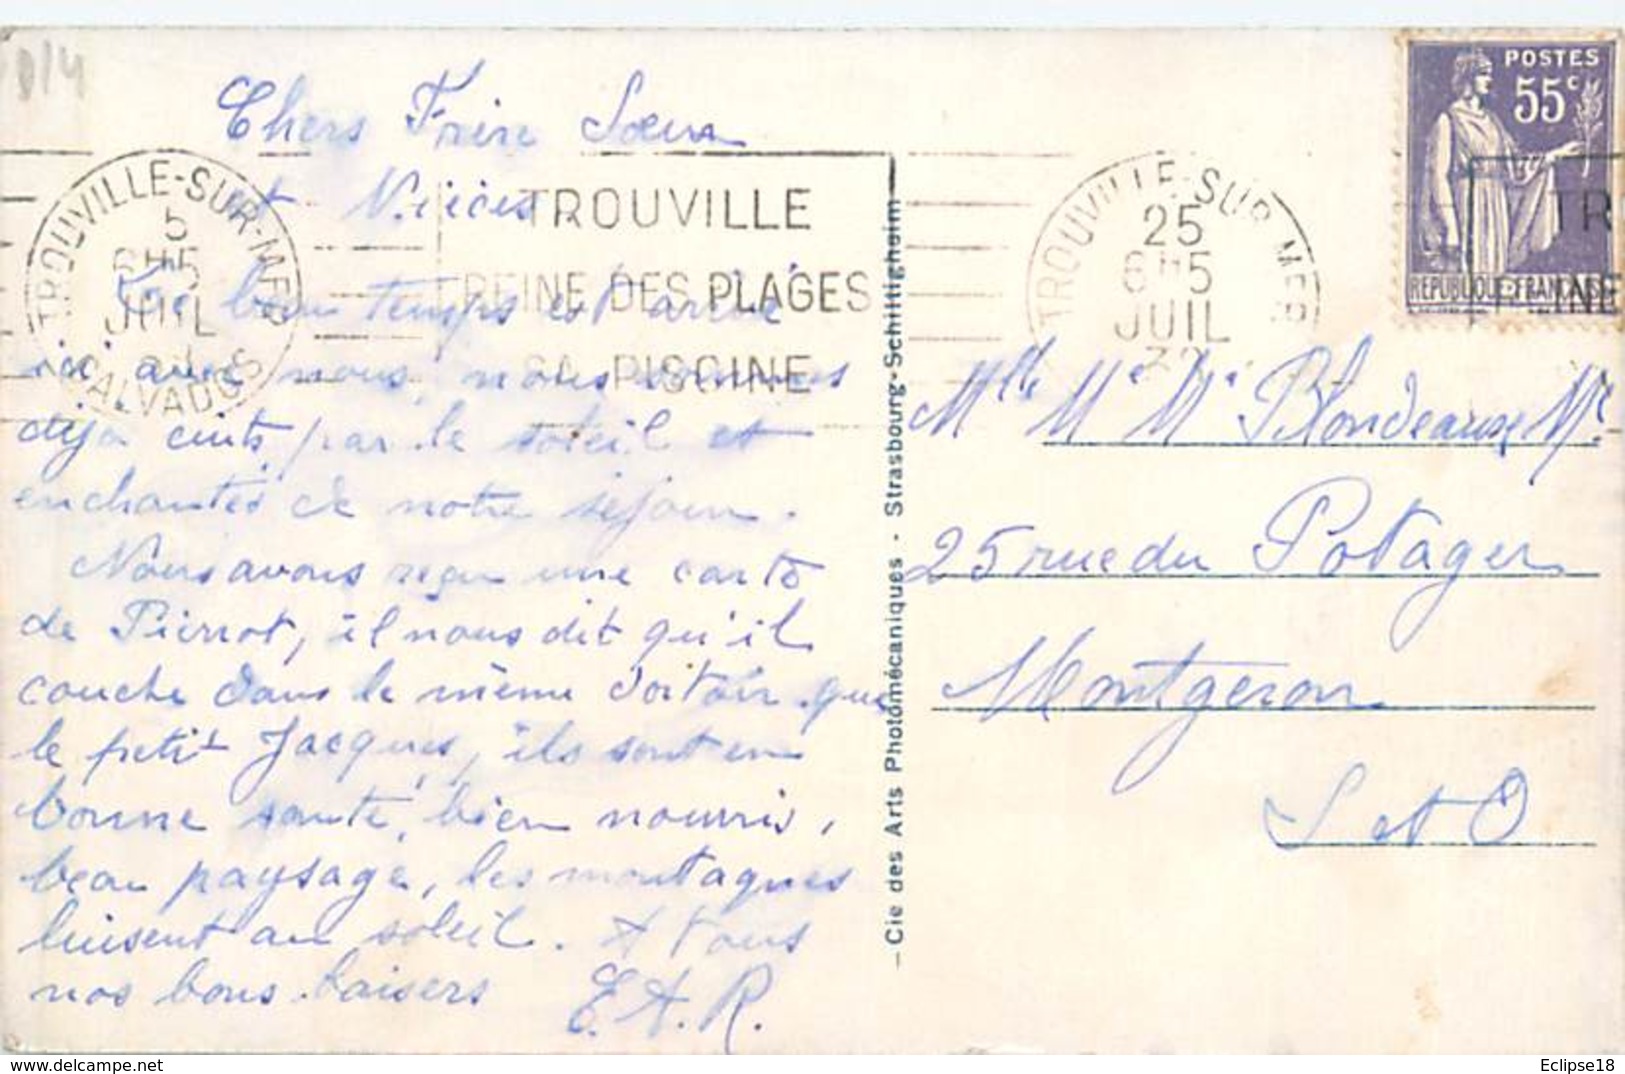 D/4
Chers Frère Soeur
et Nièces.
Le beau temps est arrivé
ici avec nous, nous sommes
déjà cuits par le soleil et
enchantés de notre séjour.
Nous avons reçu une carte
de Pierrot, il nous dit qu'il
couche dans le même dortoir que
le petit Jacques, ils sont en
bonne santé, bien nourris,
beau paysage, les montagnes
luisent au soleil. A tous
nos bons baisers
E.A.R.
TROUVILLE-SUR-MER
5
6H15
JUIL
CALVADOS
TROUVILLE
REINE DES PLAGES
SA PISCINE
- Cie des Arts Photomécaniques - Strasbourg-Schiltigheim
TROUVILLE-SUR-MER
25
6H15
JUIL
POSTES
55c
REPUBLIQUE FRANCAISE
TR
EINE
Blondeaux
25 rue du Potager
Montgeron
S et O
Eclipse18